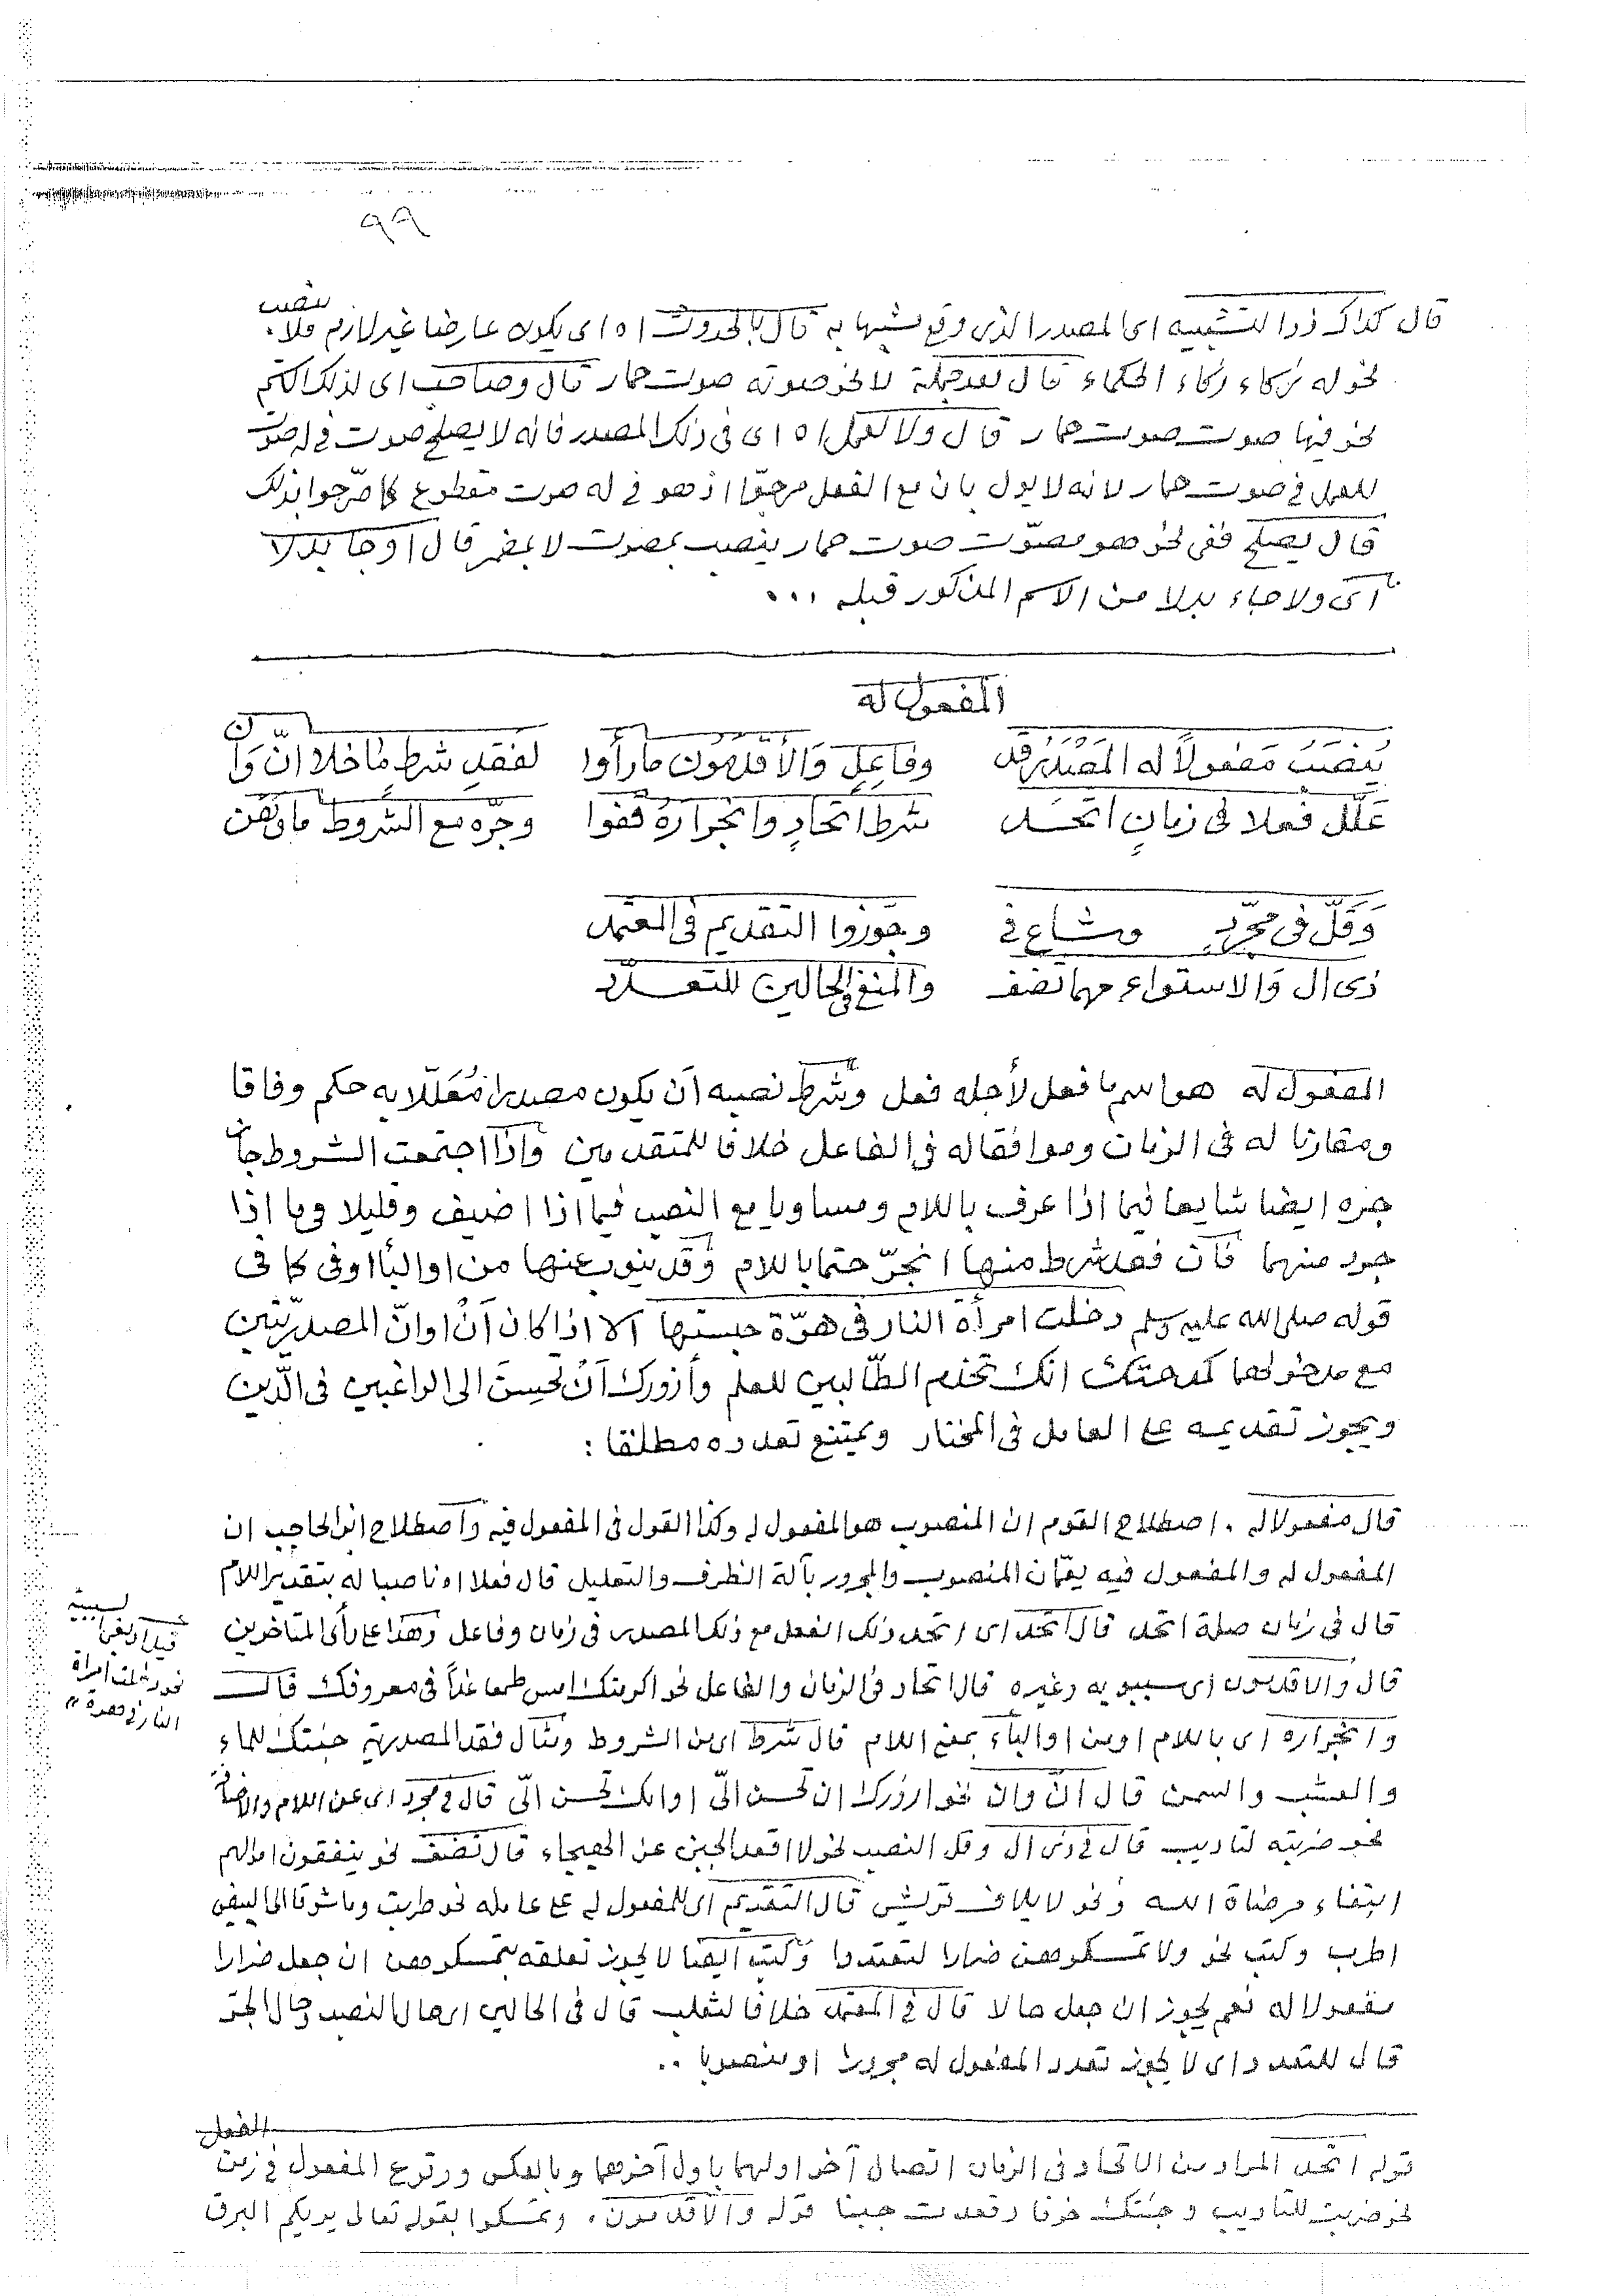 ٩٩
قال كذاك ذو التشبيه اى المصدر الذى وقع مشبها به قال بالحدوث اه اى يكون عارضا غير لازم فلا ينصب
نحو له ذكاء ذكاء الحكماء قال بعد جملة لا نحو صوته صوت حمار قال وصاحب اى لذلك الاسم
نحو فيها صوت صوت حمار قال ولا لعمل اه اى فى ذلك المصدر فانه لا يصلح صوت فى له صوت
للعمل فى صوت حمار لانه لا يول بان مع الفعل اذ هو فى له صوت مقطوع كما صرّحوا بذلك
قال يصلح ففى نحو هو مصوّت صوت حمار ينصب بمصوت لا بمضمر قال او جا بدلا
اى ولا جاء بدلا من الاسم المذكور قبله ...
المفعول له
يُنصَبُ مفعولاً له المَصْدَرُ قد وفاعِلٍ وَالأقدمون ما رأوا لفقدِ شرطٍ ما خلا انّ وَأن
عَلَّل فعلا فى زمانٍ اتحد شرط اتحادٍ وانجرارهُ قفوا وجرّه مع الشروط
وَقَلَّ فى مجرّدٍ وشاع فى وجوّزوا التقديم فى المعتمد
ذى ال وَالاستواء مهما تضف والمنع فى الحالين للتعدّد
المفعول له هو اسم ما فعل لأجله فعل وشرط نصبه أن يكون مصدرا مُعَلّلا به حكم وفاقا
ومقارنا له فى الزمان وموافقا له فى الفاعل خلافا للمتقدمين وإذا اجتمعت الشروط جاز
جره ايضا شايعا فيما اذا عرف باللام ومساويا مع النصب فيما اذا اضيف وقليلا فيما اذا
جرد منهما فان فقد شرط منها انجرّ حتما باللام وقد ينوب عنها من او البا او فى كما فى
قوله صلى الله عليه وسلم دخلت امرأة النار فى هرّة حبستها الا اذا كان أنْ او انّ المصدريّتين
مع مدخولهما كمدحتك انك تخدم الطّالبين للعلم وأزورك أنْ تحسِنَ الى الراغبين فى الدّين
ويجوز تقديمه على العامل فى المختار ويمتنع تعدده مطلقا :
قال مفعولا له . اصطلاح القوم ان المنصوب هو المفعول له وكذا القول فى المفعول فيه واصطلاح ابن الحاجب ان
المفعول له والمفعول فيه يعمّان المنصوب والمجرور بآلة الظرف والتعليل قال فعلا اه ناصبا له بتقدير اللام
قال فى زمان صلة اتحد قال اتحد اى اتحد ذلك الفعل مع ذلك المصدر فى زمان وفاعل وهذا على رأى المتاخرين
قال والاقدمون اى سيبويه وغيره قال اتحاد فى الزمان والفاعل نحو اكرمتك امس طمعا غداً فى معروفك قال
وانجراره اى باللام او من او الباء بمعنى اللام قال شرط اى من الشروط ومثال فقد المصدرية جئتك للماء
والعشب والسمن قال انّ وان نحو ازورك ان تحسن الىّ او انك تحسن الىّ قال فى مجرد اى عن اللام والاضافة
نحو ضربته لتاديب قال فى ذى ال وقل النصب نحو لا اقعد الجبن عن الهيجاء قال تضف نحو ينفقون اموالهم
ابتغاء مرضاة الله ونحو لايلاف قريش قال التقديم اى للمفعول له على عامله نحو طربت وما شوقا الى البيض
اطرب وكتب نحو ولا تمسكوهن ضرارا لتعتدوا وكتب ايضا لا يجوز تعلقه بتمسكوهن ان جعل ضرارا
مفعولا له نعم يجوز ان جعل حالا قال فى المعتمد خلافا لثعلب قال فى الحالين اى حال النصب وحال الجر
قال للتعدد اى لا يجوز تعدد المفعول له مجرورا او منصوبا ..
السببية
نحو دخلت امرأة
النار فى هرة
الفعل
قوله اتحد المراد من الاتحاد فى الزمان اتصال آخر اولهما باول آخرهما وبالعكس ووقوع المفعول فى زمن
نحو ضربت للتاديب وجئتك خوفا وقعدت جبنا قوله والاقدمون . وتمسكوا بقوله تعالى يريكم البرق